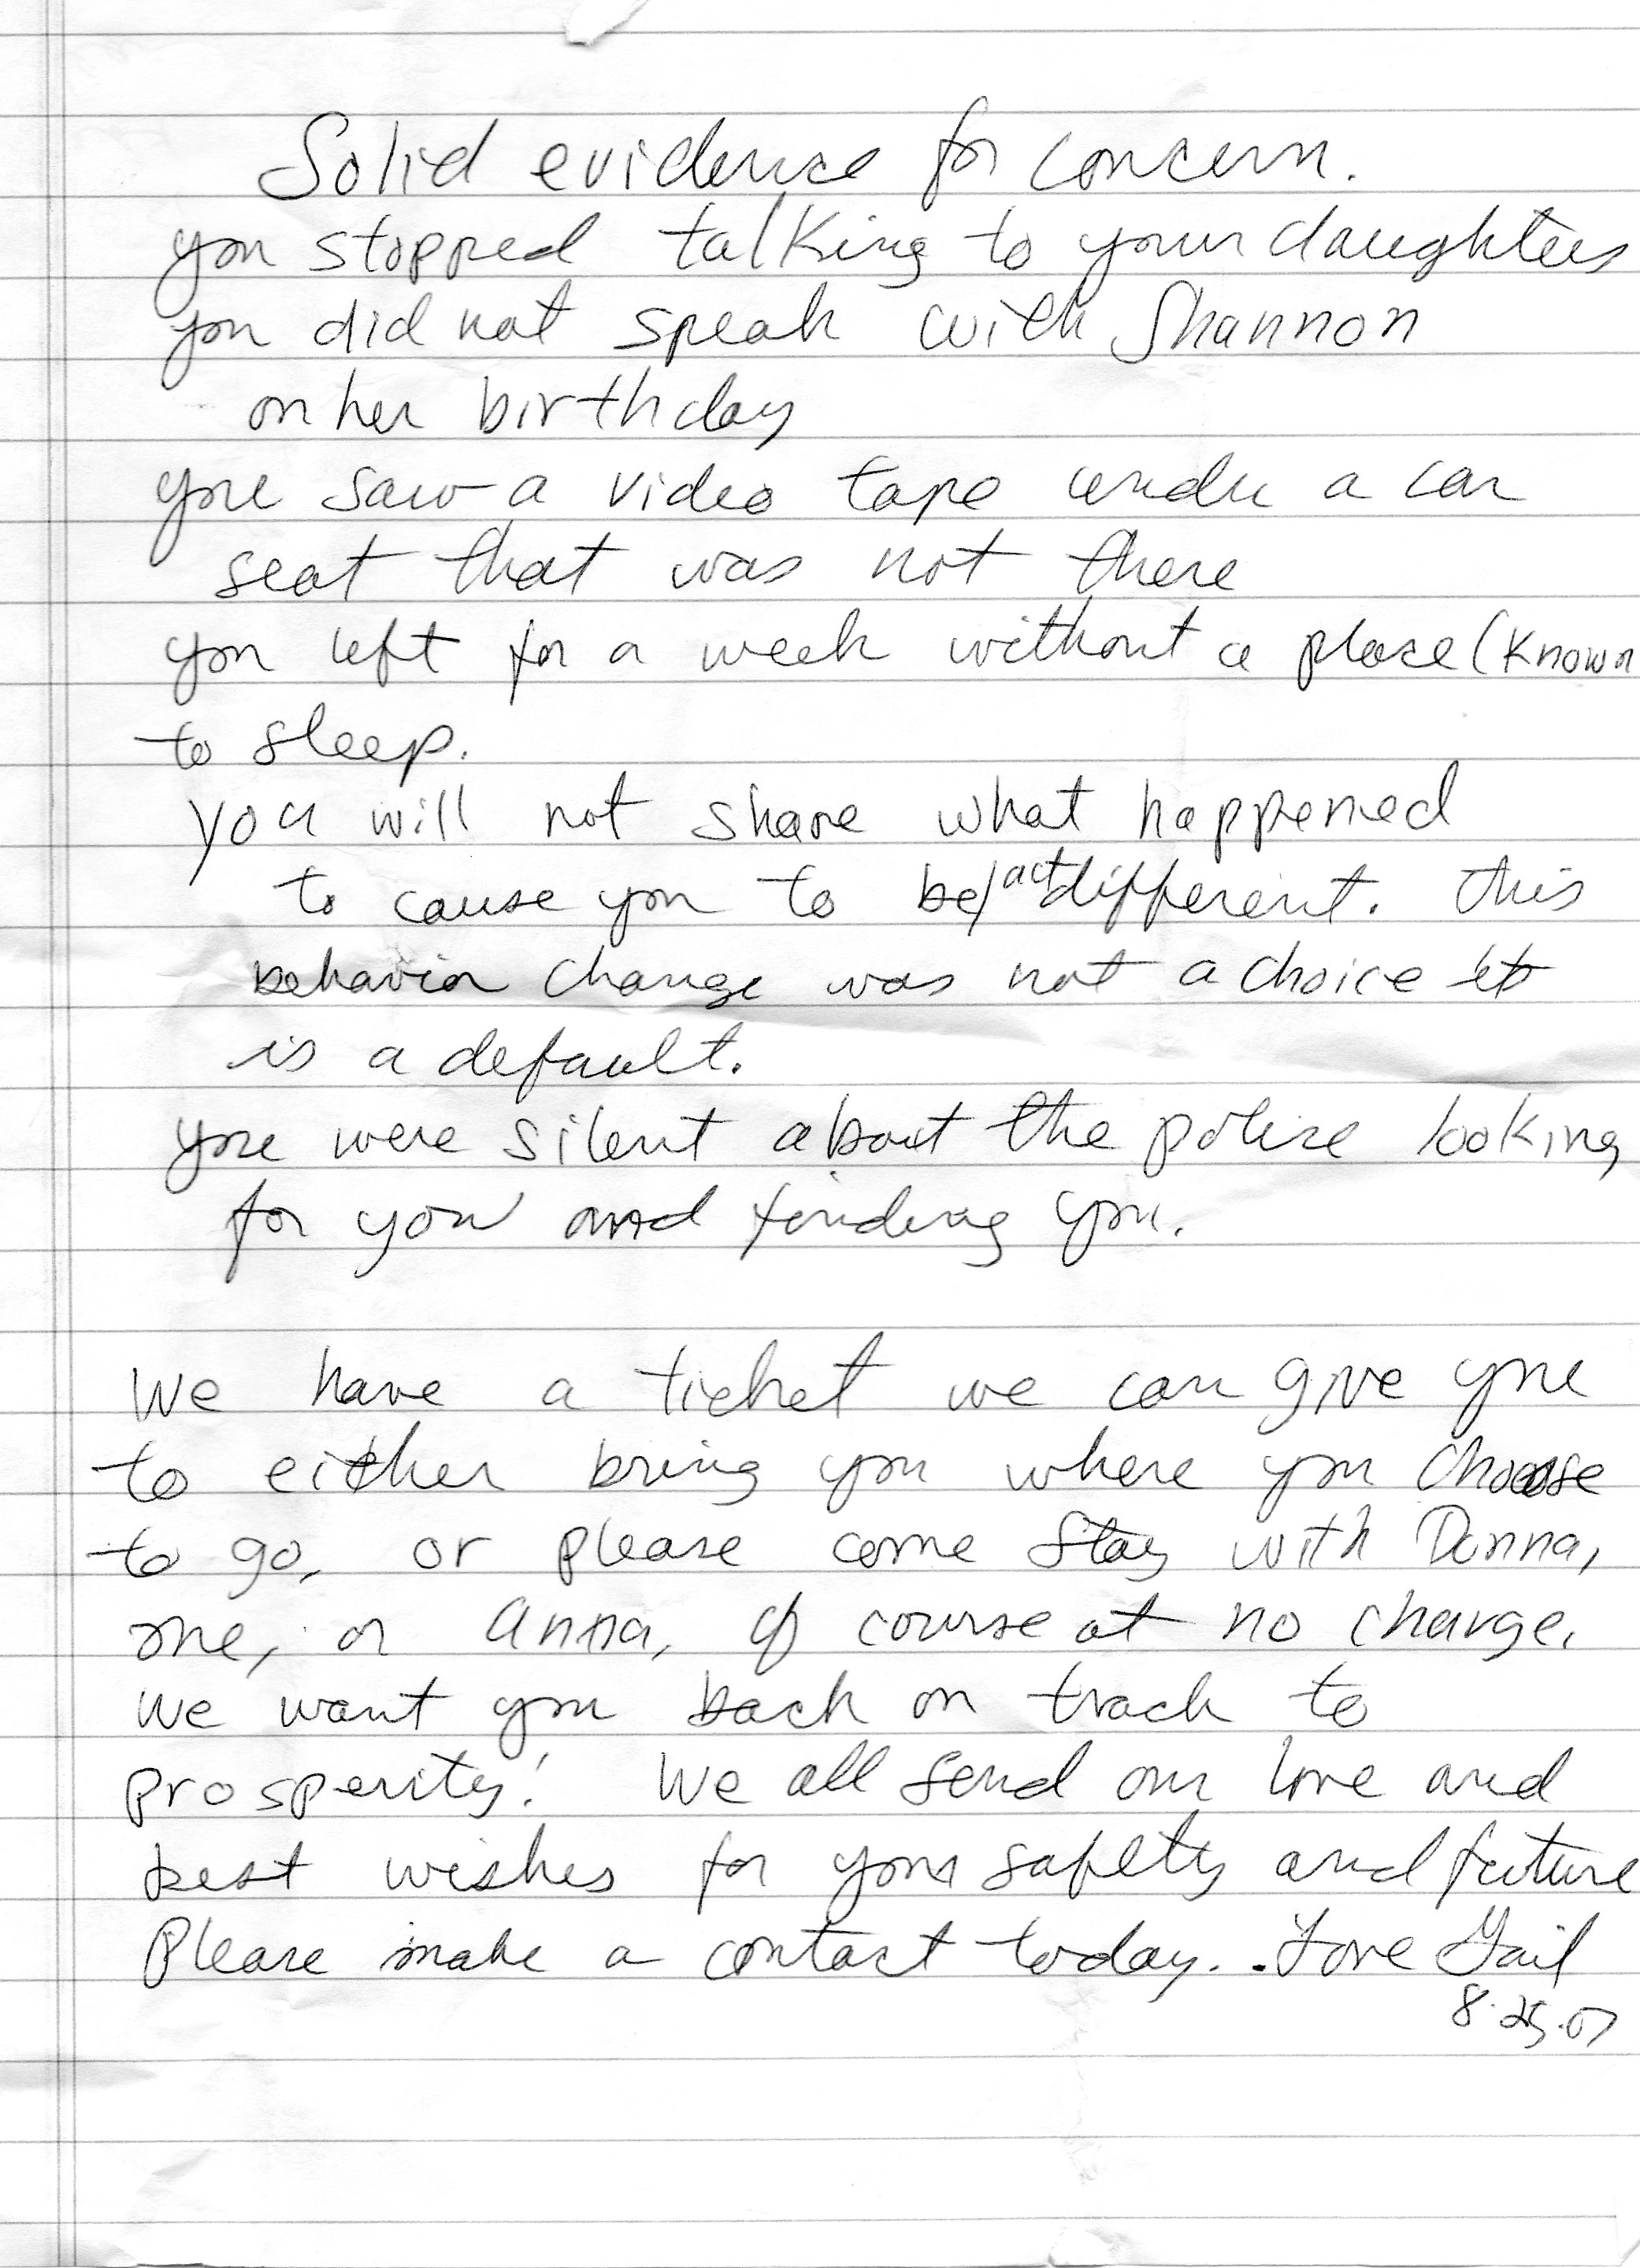 Solid evidence for concern.
you stopped talking to your daughters
you did not speak with Shannon
on her birthday
you saw a video tape under a car
seat that was not there
you left for a week without a place (known
to sleep.
you will not share what happened
to cause you to be/act different. this
behavior change was not a choice it
is a default.
you were silent about the police looking
for you and finding you.
We have a ticket we can give you
to either bring you where you choose
to go, or please come stay with Donna,
me, or Anna, of course at no charge.
we want you back on track to
prosperity! We all send our love and
best wishes for your safety and future
Please make a contact today. . Love Gail
8.25.07